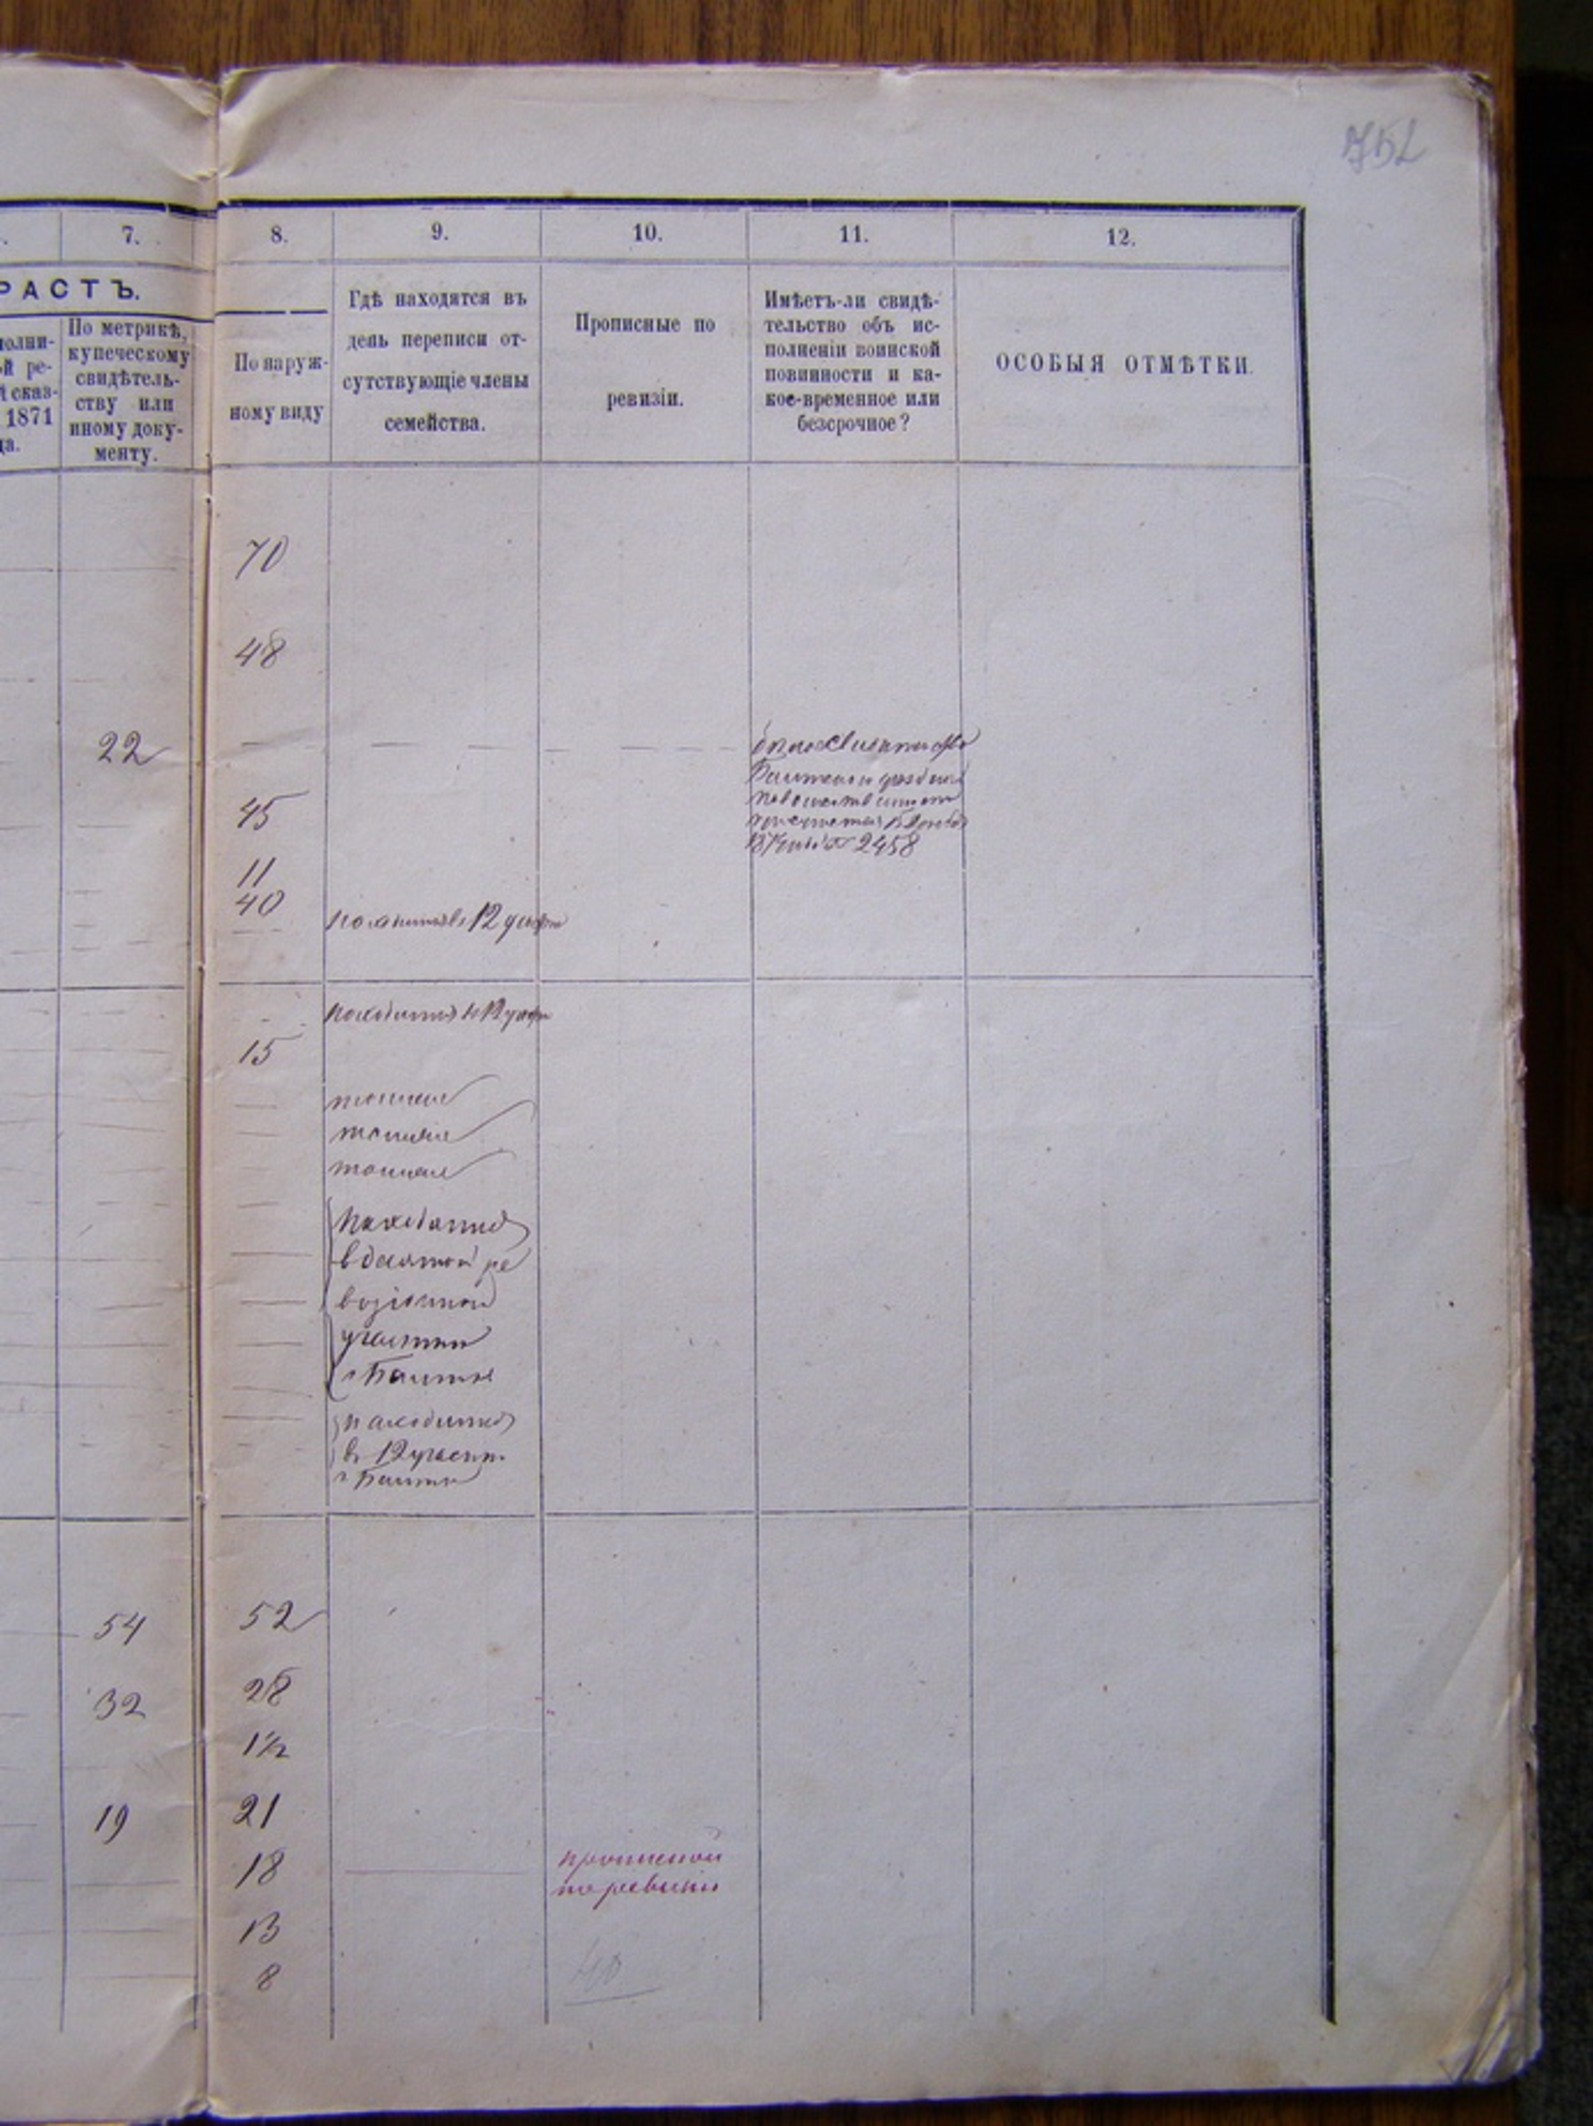 752
7.
8.
9.
10.
11.
12.
РАСТЪ.
полни-
й ре-
й сказ-
1871
да.
По метрикѣ,
купеческому
свидѣтель-
ству или
иному доку-
менту.
По наруж-
ному виду
Гдѣ находятся въ
день переписи от-
сутствующіе члены
семейства.
Прописные по
ревизіи.
Имѣетъ-ли свидѣ-
тельство объ ис-
полненіи воинской
повинности и ка-
кое-временное или
безсрочное?
ОСОБЫЯ ОТМѢТКИ.
70
48
22
2458
45
11
40
12
находится 12
15
тоже
тоже
тоже
находится
в десятой ре
визіонном
участке
находится
в 12 участ.
54
52
32
28
1½
19
21
18
прописной
по ревизіи
13
8
40